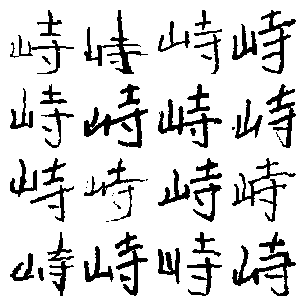 峙峙峙峙
峙峙峙峙
峙峙峙峙
峙峙峙峙